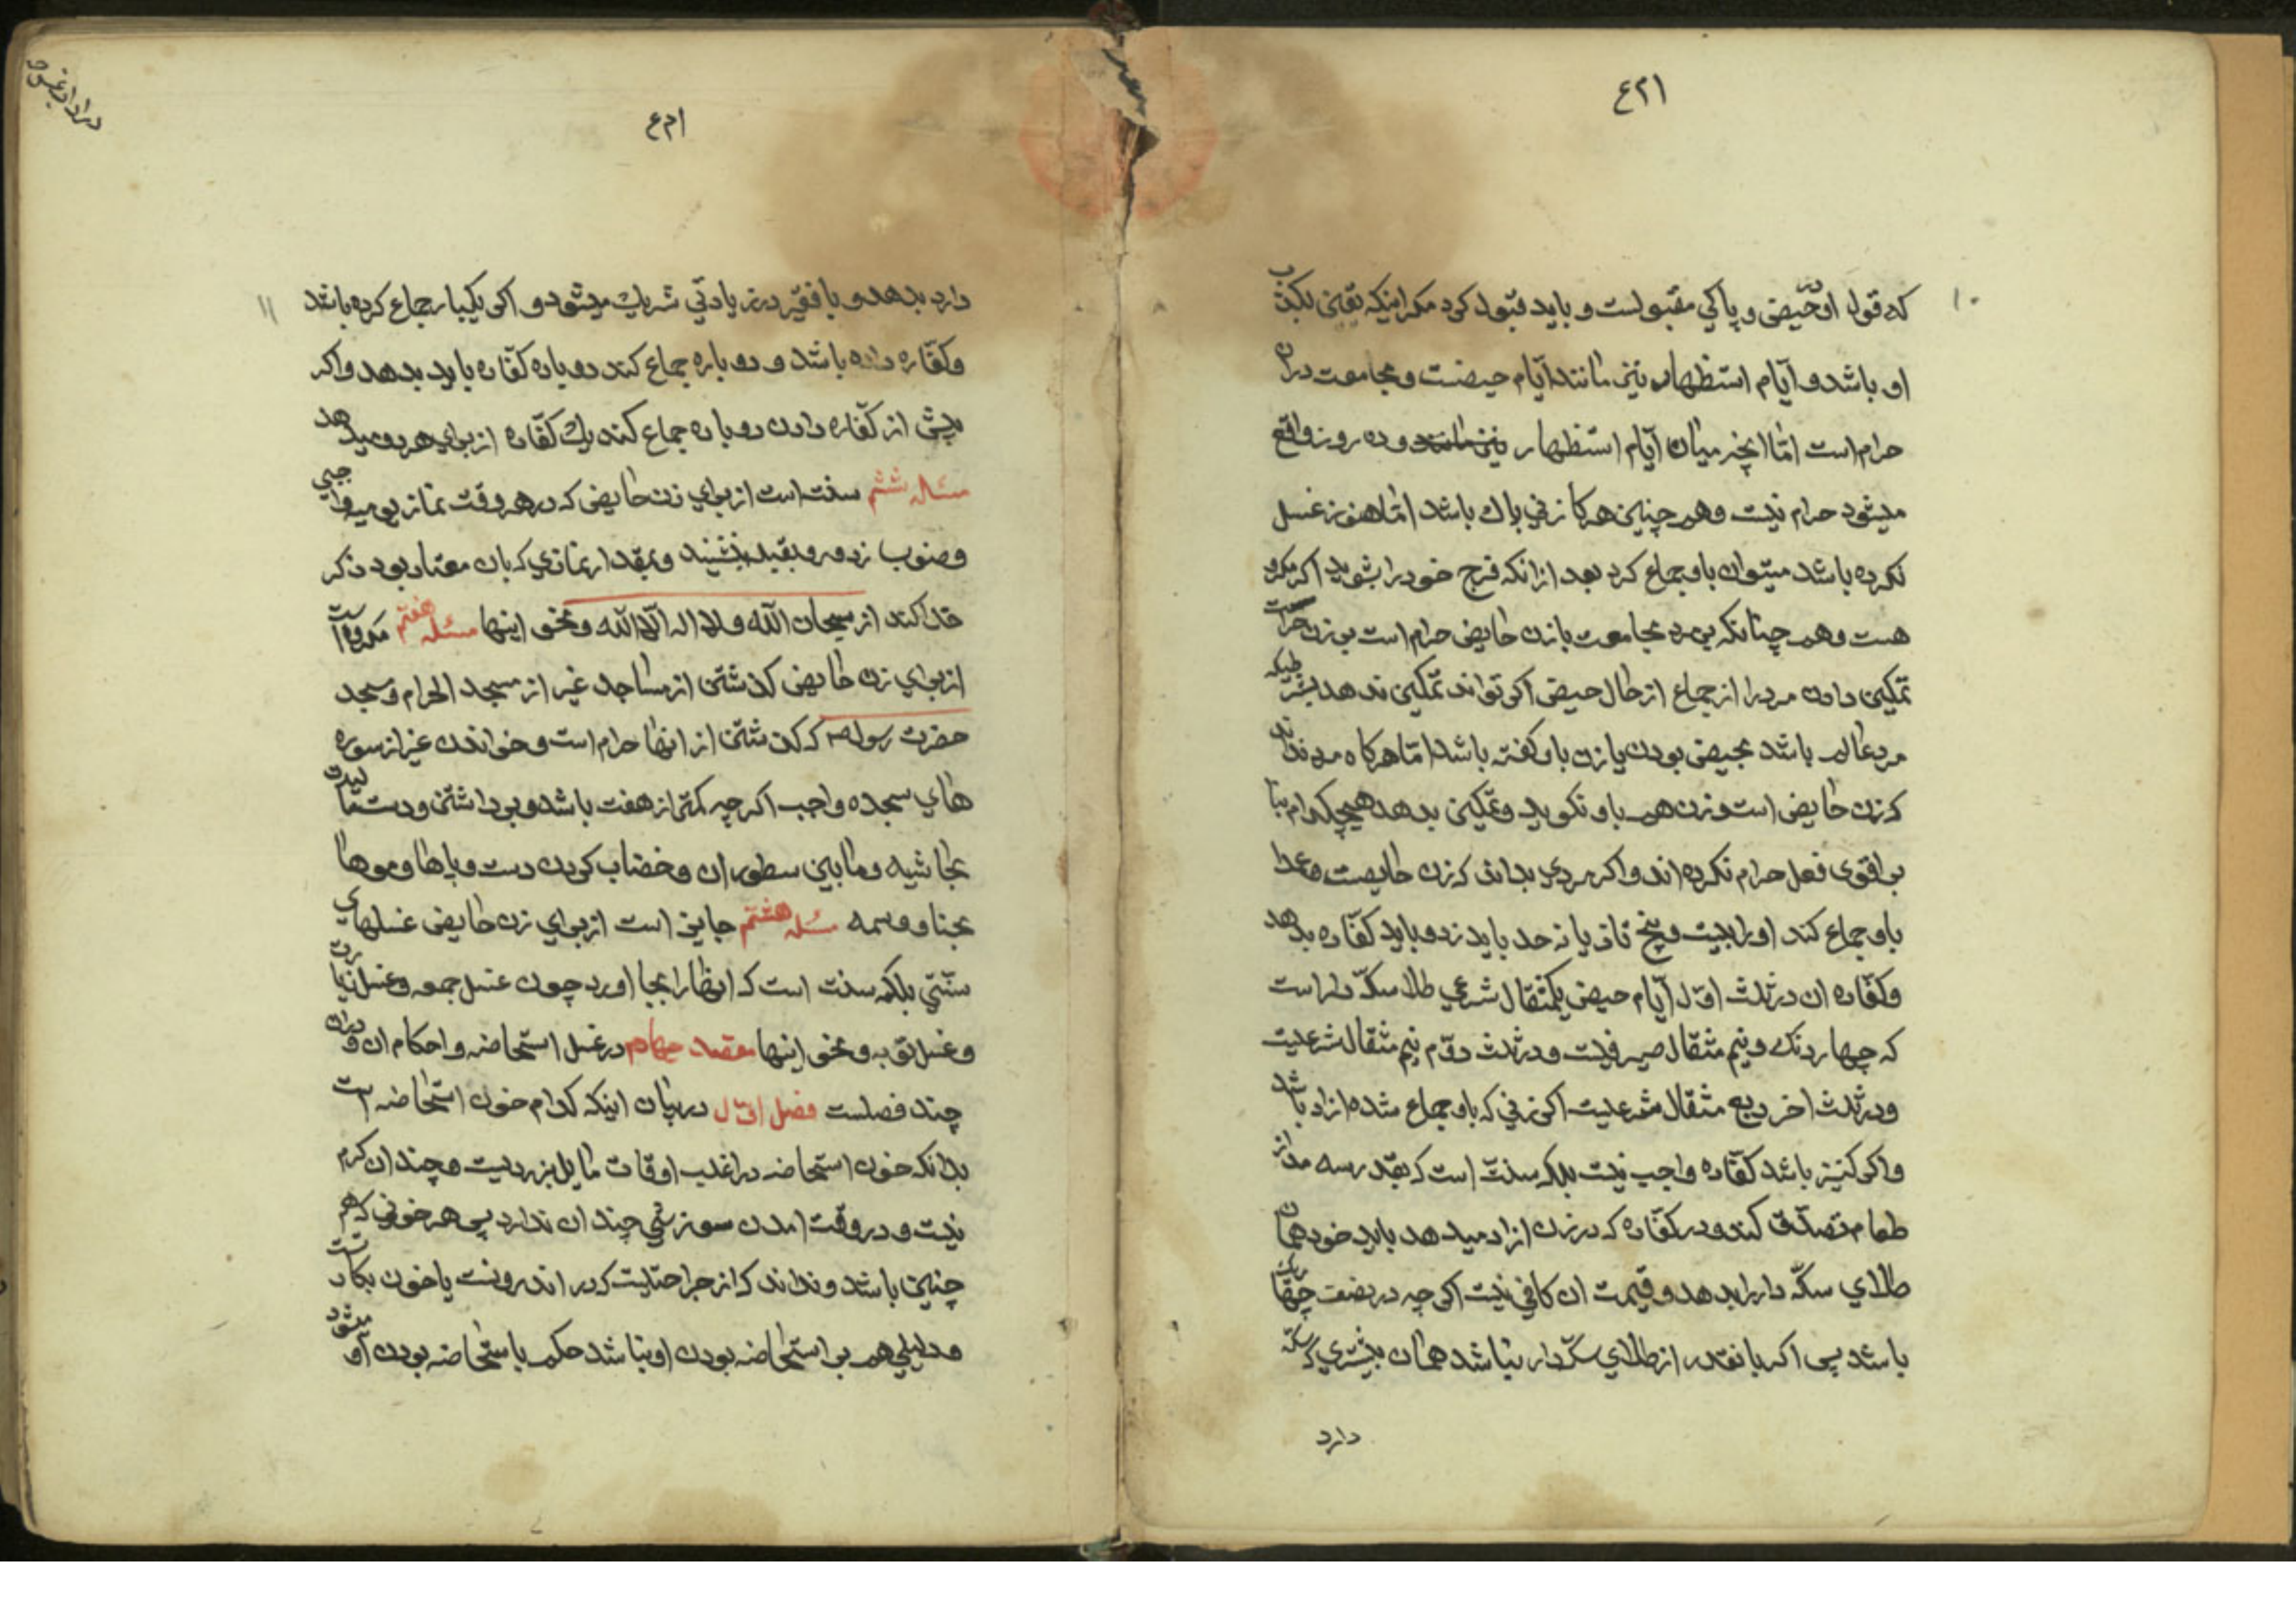 ۱۲ع
۱۰
که قول او در حیض و پاکی مقبولست و باید قبول کرد مکر اینکه یقین بکذب
او باشد و ایّام استظهار نیز مانند ایّام حیضست و مجامعت دران
حرام است امّا انچه میان ایّام استظهار نیز مانند و ده روز واقع
میشود حرام نیست و هم چنین هرکا زنی پاك باشد امّا هنوز غسل
نکرده باشد میتوان باو جماع کرد بعد از انکه فرج خود را بشوید اکر مکروه
هست و هم چنانکه بر مرد مجامعت با زن حایض حرام است بر زن حرامست
تمکین دادن مرد را از جماع از حال حیض اکر تواند تمکین ندهد بشرطیکه
مرد عالم باشد بحیض بودن یا زن باو کفته باشد امّا هرکاه مرد نداند
که زن حایض است و زن هم باو نکوید و تمکین بدهد هیچکدام بنا
بر اقوی فعل حرام نکرده اند و اکر مردی بداند که زن حایضست و عمدا
باو جماع کند او را بیست و پنج تازیانه حد باید زد و باید کفّاره بدهد
و کفّاره ان در ثلث اوّل ایّام حیض یکمثقال شرعی طلا سکّه دار است
که چهار دنك و نیم مثقال صیرفیست و در ثلث دوّم نیم مثقال شرعیست
و در ثلث اخر ربع مثقال شرعیست اکر زنی که باو جماع شده ازاد باشد
و اکر کنیز باشد کفّاره واجب نیست بلکه سنّت است که بقدر سه مد از
طعام تصدّق کند و در کفّاره که در زن ازاد میدهد باید خود همان
طلای سکّه دار را بدهد و قیمت ان کافی نیست اکر چه در نصف چهار یك
باشد پس اکر بانقدر از طلای سکّه دار نباشد همان بیشتری که سکّه
دارد
۱۲ع
۱۱
دارد بدهد و با فقیر در زیادتی شریك میشود و اکر یکبار جماع کرده باشد
و کفّاره داده باشد و دوباره جماع کند دوباره کفّاره باید بدهد و اکر
پیش از کفّاره دادن دوباره جماع کند یك کفّاره از برای هر دو میدهد
مسئله ششم سنت است از برای زن حایض که در هر وقت نماز یومیه واجبی
وضوب زد و رو بقبله بنشیند و بقدر نمازی که بان معتاد بود ذکر
خدا کند از سبحان الله و لا اله الّا الله و نحو اینها مسئله هفتم مکروه است
از برای زن حایض کذشتن از مساجد غیر از مسجد الحرام و مسجد
حضرت رسول ص که کذشتن از انها حرام است و خواندن غیر از سوره
های سجده واجب اکرچه کمتر از هفت باشد و برداشتن و دست مالیدن
بحاشیه و مابین سطور ان و خضاب کردن دست و پاها و موها
بحنا و وسمه مسئله هشتم جایز است از برای زن حایض غسلهای
سنّتی بلکه سنت است که انها را بجا اورد چون غسل جمعه و غسل زیارت
و غسل توبه و نحو اینها مقصد چهارم در غسل استحاضه و احکام ان و دران
چند فصلست فصل اوّل در بیان اینکه کدام خون استحاضه است
بدانکه خون استحاضه در اغلب اوقات مایل بزردیست و چندان کرم
نیست و در وقت امدن سوزشی چندان ندارد پس هر خونی که هم
چنین باشد و نداند که از جراحتیست که در اندرونست یا خون بکارتست
و دلیلی هم بر استحاضه بودن او نباشد حکم باستحاضه بودن او میشود